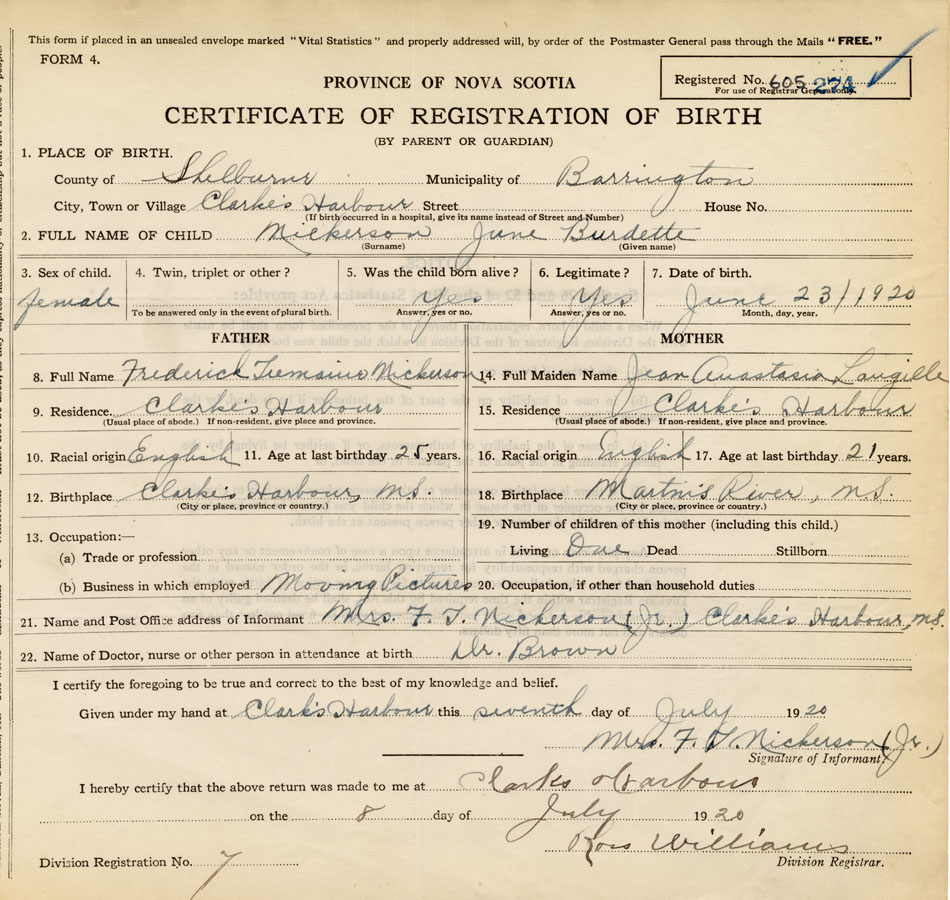 This form if placed in an unsealed envelope marked "Vital Statistics" and properly addressed will, by order of the Postmaster General pass through the Mails "FREE."
FORM 4.
PROVINCE OF NOVA SCOTIA
Registered No. 605 274
For use of Registrar General only.
CERTIFICATE OF REGISTRATION OF BIRTH
(BY PARENT OR GUARDIAN)
1. PLACE OF BIRTH.
County of Shelburne Municipality of Barrington
City, Town or Village Clarke's Harbour Street House No.
(If birth occurred in a hospital, give its name instead of Street and Number)
2. FULL NAME OF CHILD Nickerson June Burdette
(Surname) (Given name)
3. Sex of child. 4. Twin, triplet or other? 5. Was the child born alive? 6. Legitimate? 7. Date of birth.
female Yes Yes June 23/1920
To be answered only in the event of plural birth. Answer, yes or no. Answer, yes or no. Month, day, year.
FATHER MOTHER
8. Full Name Frederick Tremaine Nickerson 14. Full Maiden Name Jean Anastasia Langille
9. Residence. Clarke's Harbour 15. Residence Clarke's Harbour
(Usual place of abode.) If non-resident, give place and province. (Usual place of abode.) If non-resident, give place and province.
10. Racial origin English 11. Age at last birthday 25 years. 16. Racial origin English 17. Age at last birthday 21 years.
12. Birthplace Clarke's Harbour, N.S. 18. Birthplace Martin's River, N.S.
(City or place, province or country.) (City or place, province or country.)
13. Occupation:— 19. Number of children of this mother (including this child.)
(a) Trade or profession Living One Dead Stillborn
(b) Business in which employed Moving Pictures 20. Occupation, if other than household duties
21. Name and Post Office address of Informant Mrs. F. T. Nickerson (Jr.) Clarke's Harbour, N.S.
22. Name of Doctor, nurse or other person in attendance at birth Dr. Brown
I certify the foregoing to be true and correct to the best of my knowledge and belief.
Given under my hand at Clark's Harbour this seventh day of July 1920
Mrs. F. T. Nickerson (Jr.)
Signature of Informant.
I hereby certify that the above return was made to me at Clarks Harbour
on the 8 day of July 1920
Ross Williams
Division Registration No. 7 Division Registrar.